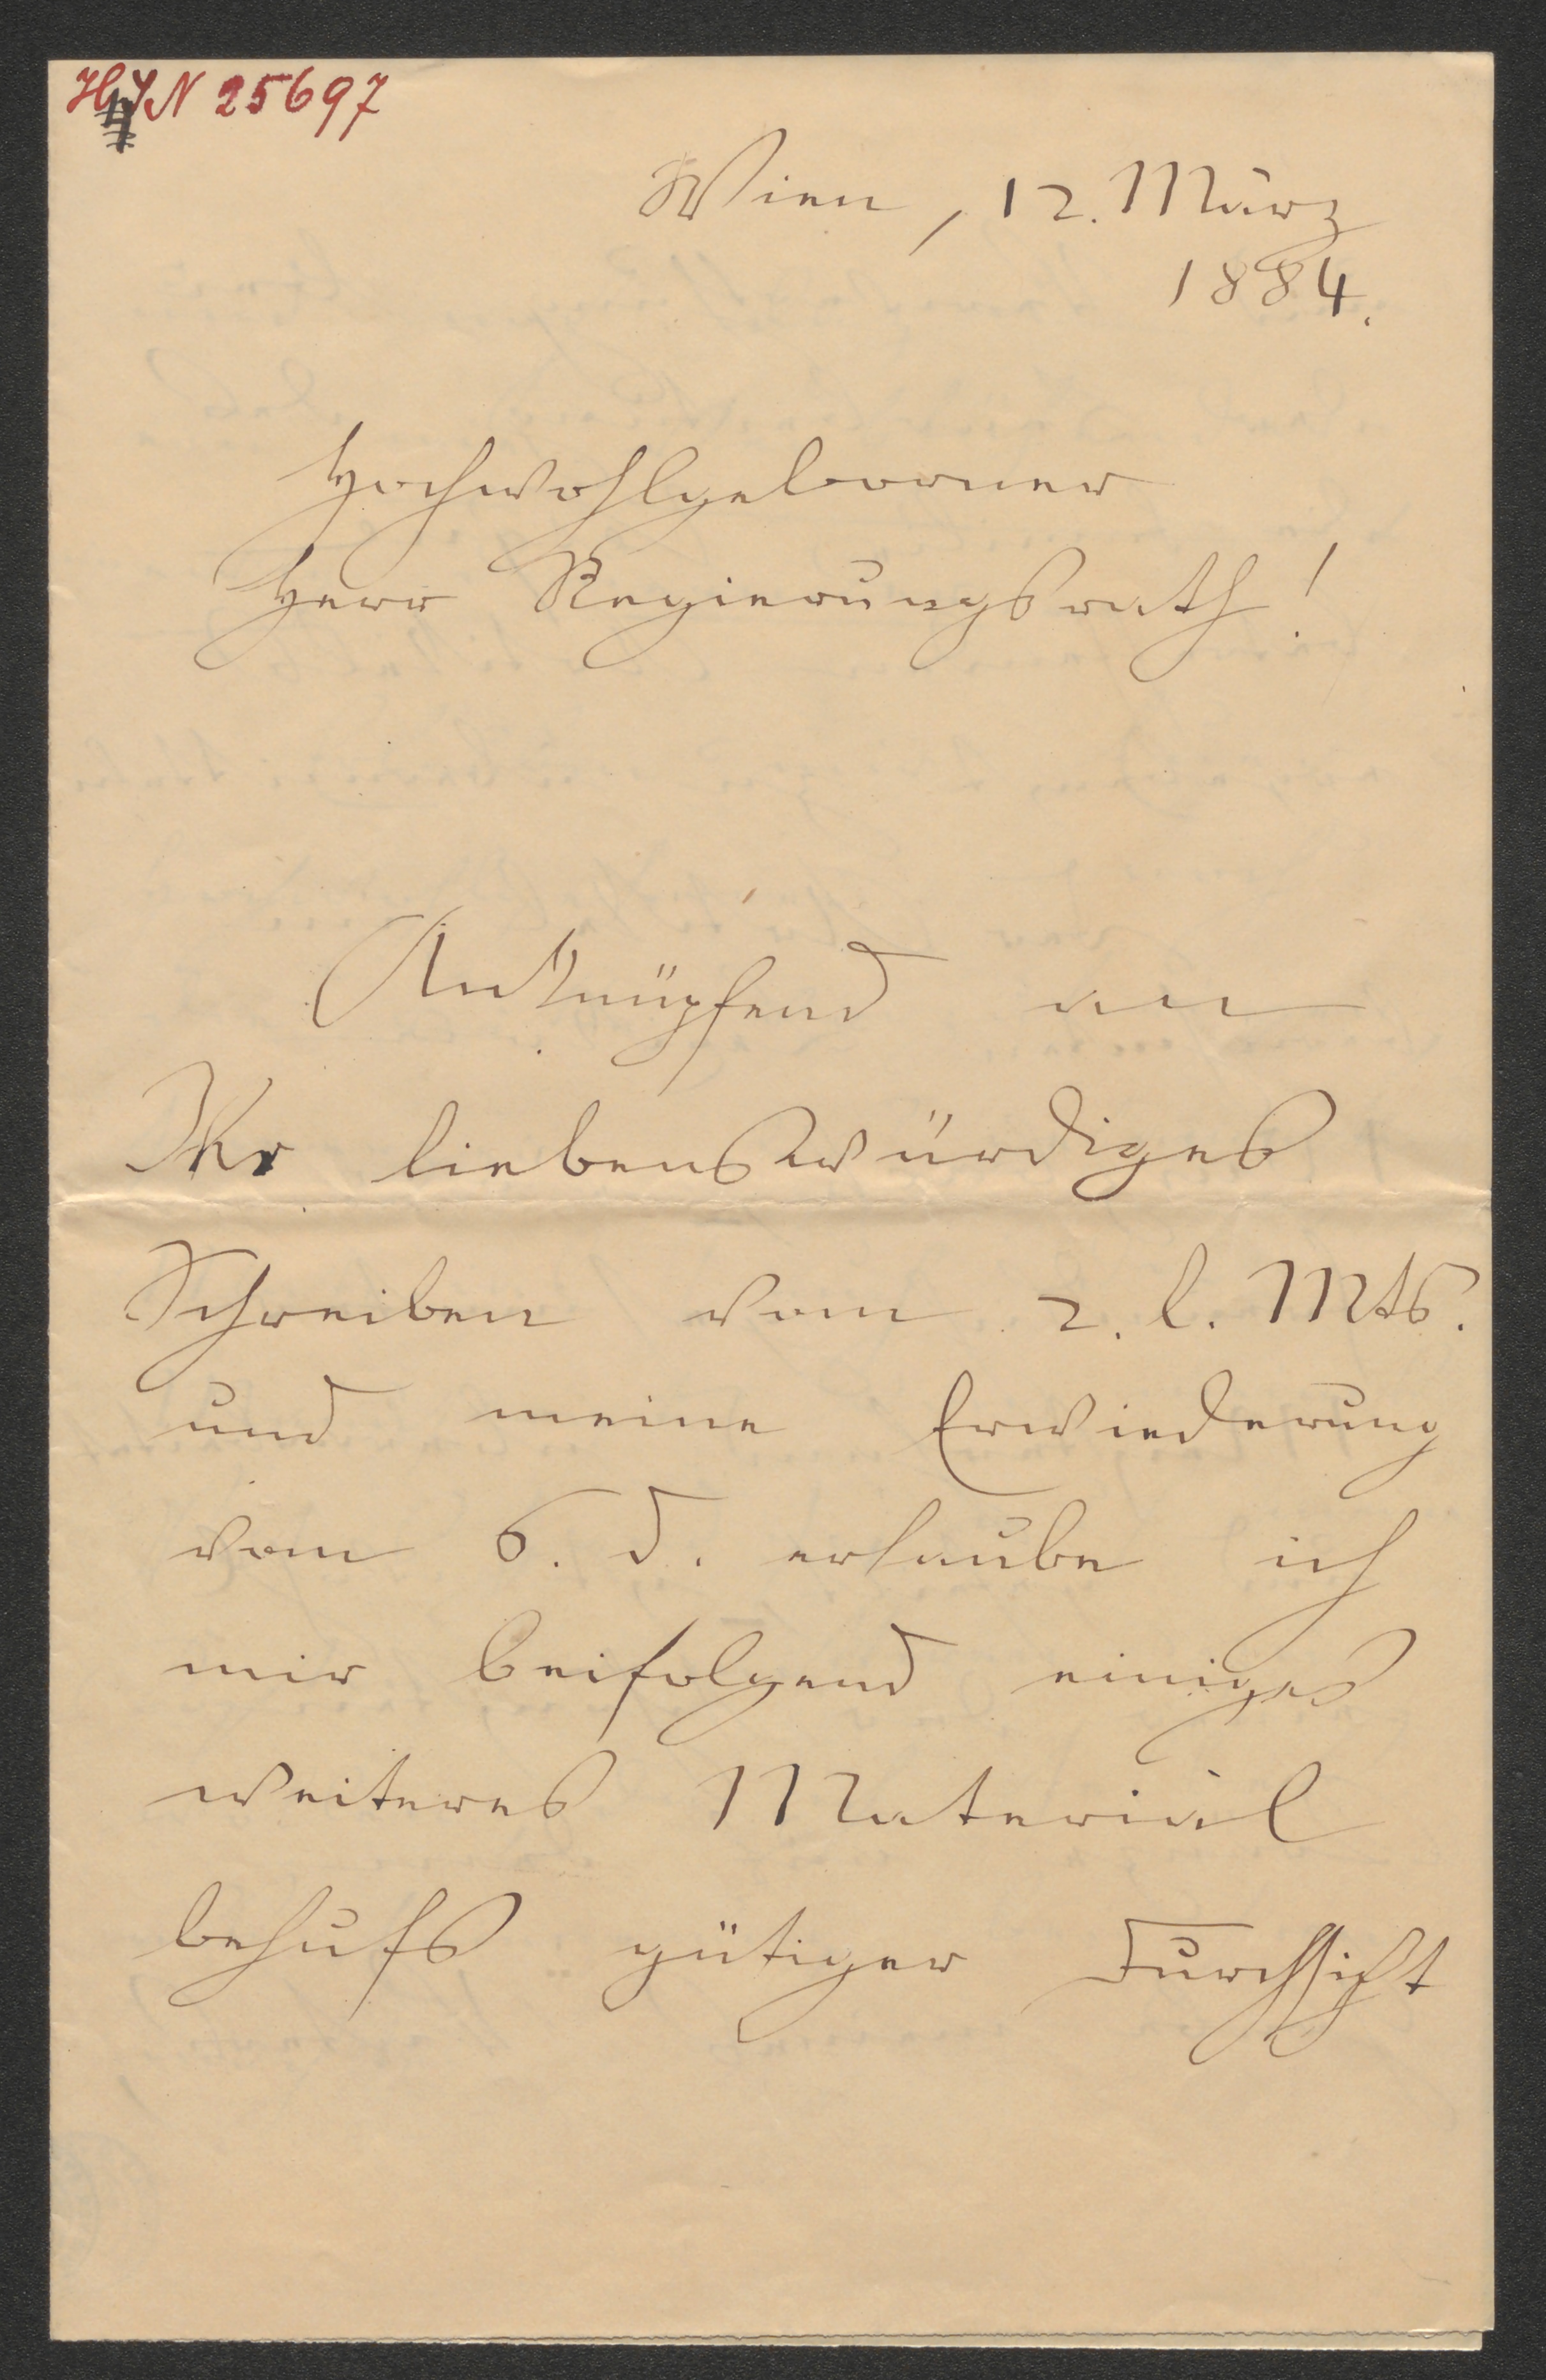 H.I.N 25697
Wien, 12. März
1884.
Hochwohlgeborner
Herr Regierungsrath!
Anknüpfend an
Ihr liebenswürdiges
Schreiben vom 2. l. Mts.
und meine Erwiederung
vom 6. d. erlaube ich
mir beifolgend einiges
weiteres Material
behufs gütiger Durchsicht